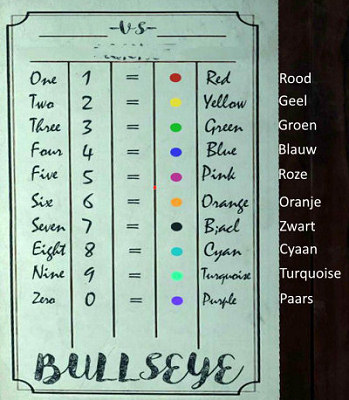 -VS-
One 1 = Red Rood
Two 2 = Yellow Geel
Three 3 = Green Groen
Four 4 = Blue Blauw
Five 5 = Pink Roze
Six 6 = Orange Oranje
Seven 7 = B;acl Zwart
Eight 8 = Cyan Cyaan
Nine 9 = Turquoise Turquoise
Zero 0 = Purple Paars
BULLSEYE